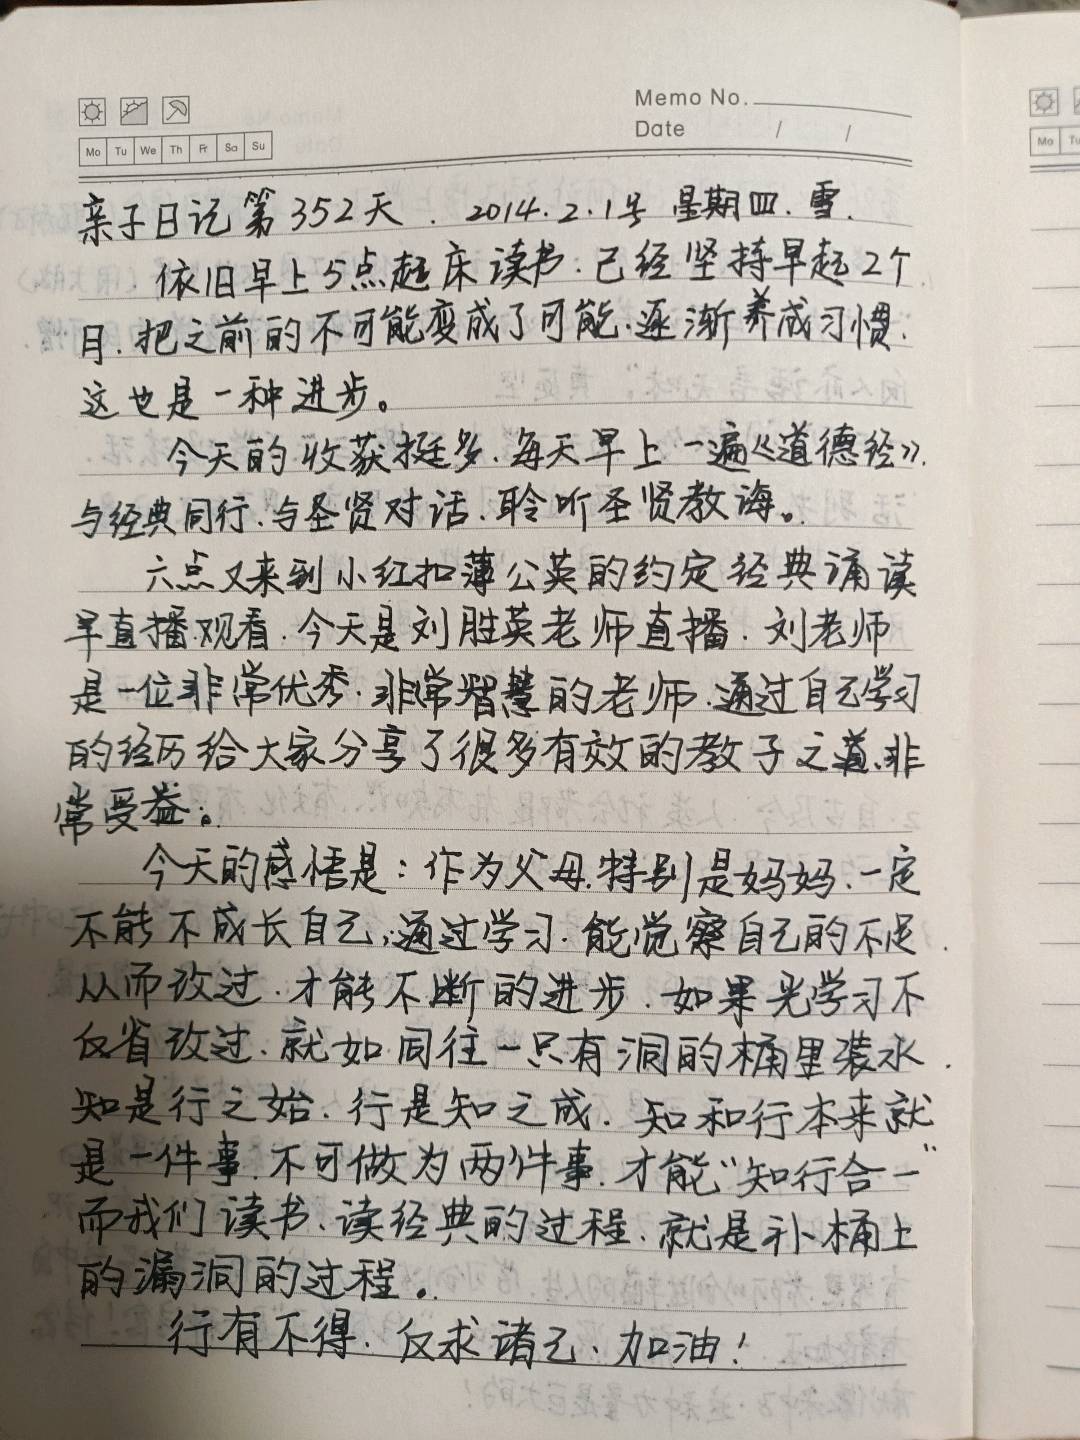 Memo No.
Date / /
Mo Tu We Th Fr Sa Su
Mo
亲子日记第352天. 2014.2.1号 星期四.雪.
依旧早上5点起床读书.已经坚持早起2个
月.把之前的不可能变成了可能.逐渐养成习惯.
这也是一种进步。
今天的收获挺多.每天早上一遍《道德经》.
与经典同行.与圣贤对话.聆听圣贤教诲。
六点又来到小红扣薄公英的约定经典诵读
早直播观看.今天是刘胜英老师直播.刘老师
是一位非常优秀.非常智慧的老师.通过自己学习
的经历给大家分享了很多有效的教子之道.非
常受益。
今天的感悟是:作为父母.特别是妈妈.一定
不能不成长自己,通过学习.能觉察自己的不足.
从而改过.才能不断的进步.如果光学习不
反省改过.就如同往一只有洞的桶里装水.
知是行之始.行是知之成.知和行本来就
是一件事.不可做为两件事.才能“知行合一”
而我们读书、读经典的过程.就是补桶上
的漏洞的过程。
行有不得.反求诸己.加油!